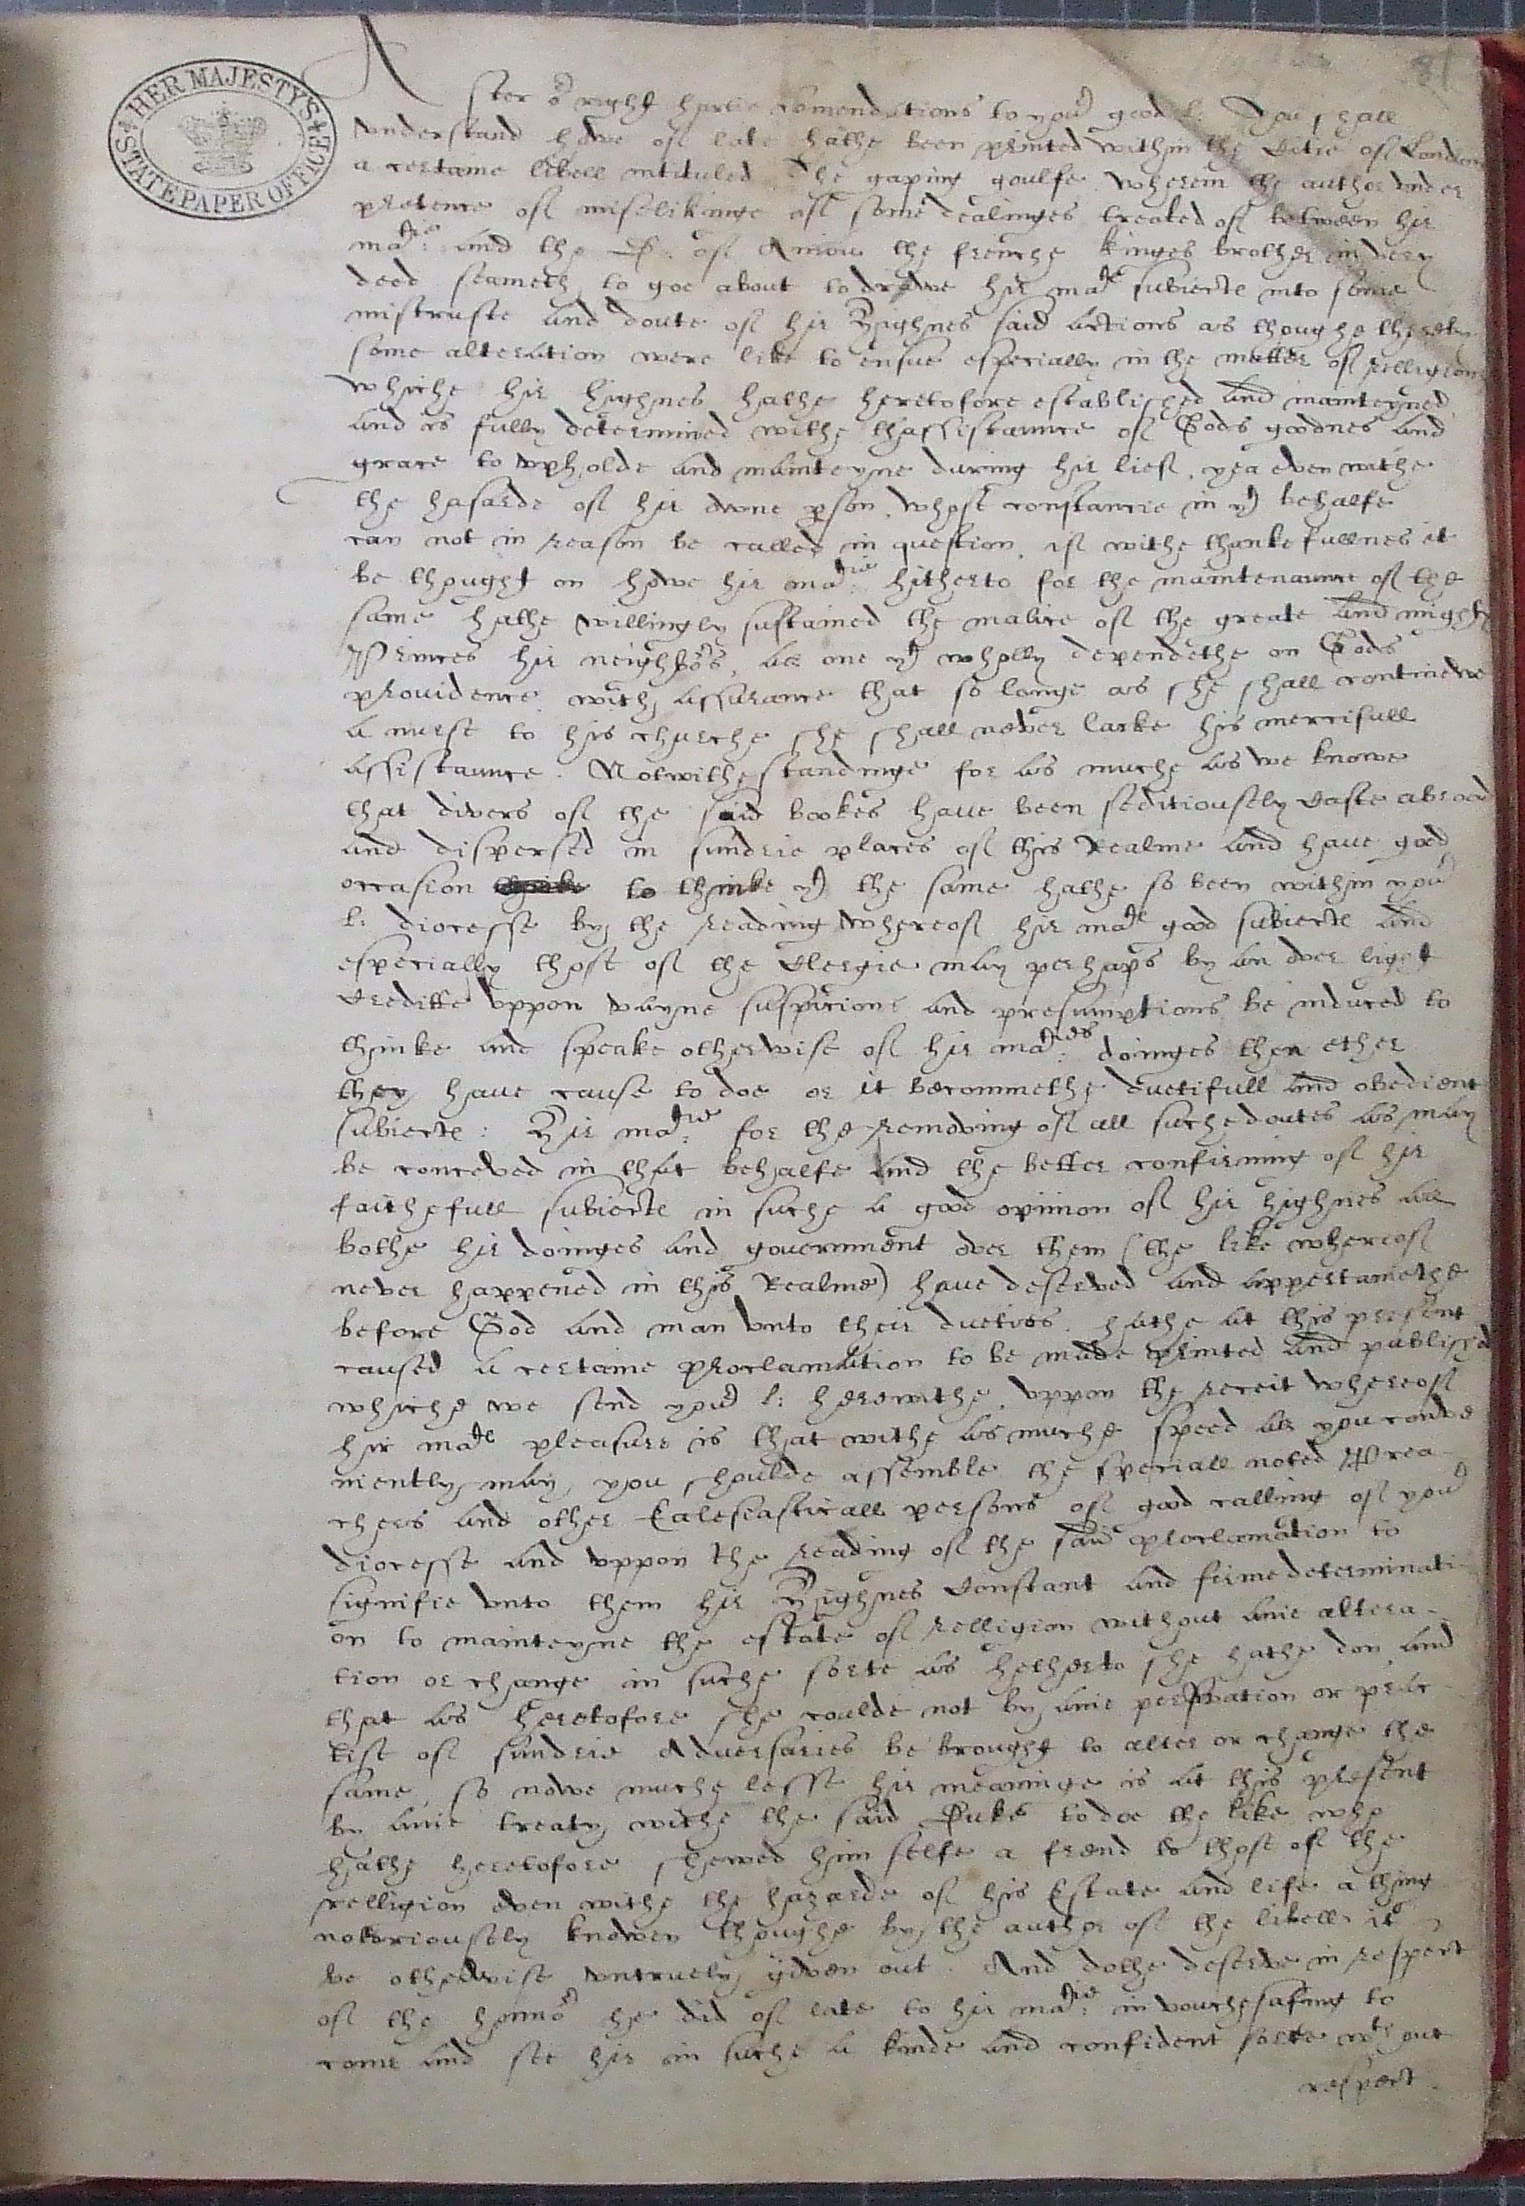 81
HER MAJESTY'S
STATE PAPER OFFICE
After or right hartie comendations to yor good l: You shall
vnderstand howe of late hathe been printed within the Citie of London
a certaine libell intituled The gaping goulfe wherein the author vnder
pretence of misslikinge of some dealinges treated of between hir
matie: and the D. of Aniou the frenche kinges brother in very
deed seameth to goe about to drawe hir mate subiecte into some
mistruste and doute of hir Highnes said actions as thoughe therby
some alteration were like to ensue especially in the matter of relligion
whiche hir highnes hathe heretofore established and mainteyned
and is fully determined withe thassistaunce of Gods goodnes and
grace to vpholde and mainteyne during hir lief, yea even withe
the hasarde of hir owne pson, whose constancie in yt behalfe
can not in reason be called in question, if withe thankefullnes it
be thought on howe hir matie: hitherto for the maintenaunce of the
same hathe willingly sustained the malice of the greate and mighty
Princes hir neighbors, as one yt wholly dependethe on Gods
providence, with assurance that so longe as she shall continewe
a nurse to his churche she shall never lacke his mercifull
assistaunce. Notwithestandinge for as muche as we knowe
that divers of the said bookes have been seditiousely caste abroad
and dispersed in sundrie places of this Realme and have good
occasion to thinke yt the same hathe so been within yor
l: diocesse by the reading whereof hir mate good subiecte and
especially those of the Clergie may perhaps by an over light
Creditte vppon vayne suspicions and presumptions be induced to
thinke and speake otherwise of hir maties: doinges then ether
they have cause to doe or it becommethe duetifull and obedient
subiecte: Hir matie: for the removing of all suche doutes as may
be conceved in that behalfe and the better confirming of hir
faithefull subiecte in suche a good opinion of hir highnes as
bothe hir doinges and government over them (the like whereof
never happened in this Realme) have deserved and appertainethe
before God and man vnto their dueties, hathe at this present
caused a certaine proclamation to be made printed and published
whiche we send yor l: herewithe, vppon the receit whereof
hir mate pleasure is that withe as muche speed as you conve
niently may, you shoulde assemble the speciall noted Prea-
chers and other Ecclesiasticall persons of good calling of yor
diocesse and vppon the reading of the said proclamation to
signifie vnto them hir Highnes Constant and firme determinati-
on to mainteyne the estate of relligion without anie altera-
tion or change in suche sorte as hetherto she hathe don, and
that as heretofore she coulde not by anie perswation or prac-
tise of sundrie Adversaries be brought to alter or change the
same, so nowe muche lesse hir meaninge is at this present
by anie treaty withe the said Duke to doe the like who
hathe heretofore shewed him selfe a frend to those of the
relligion even withe the hazarde of his Estate and life a thing
notoriousely knowen thoughe by the author of the libell it
be otherwise vntruely given out. And dothe deserve in respect
of the honnor he did of late to hir matie: in vouchesafing to
come and see hir in suche a kinde and confident sorte wth out
respect.